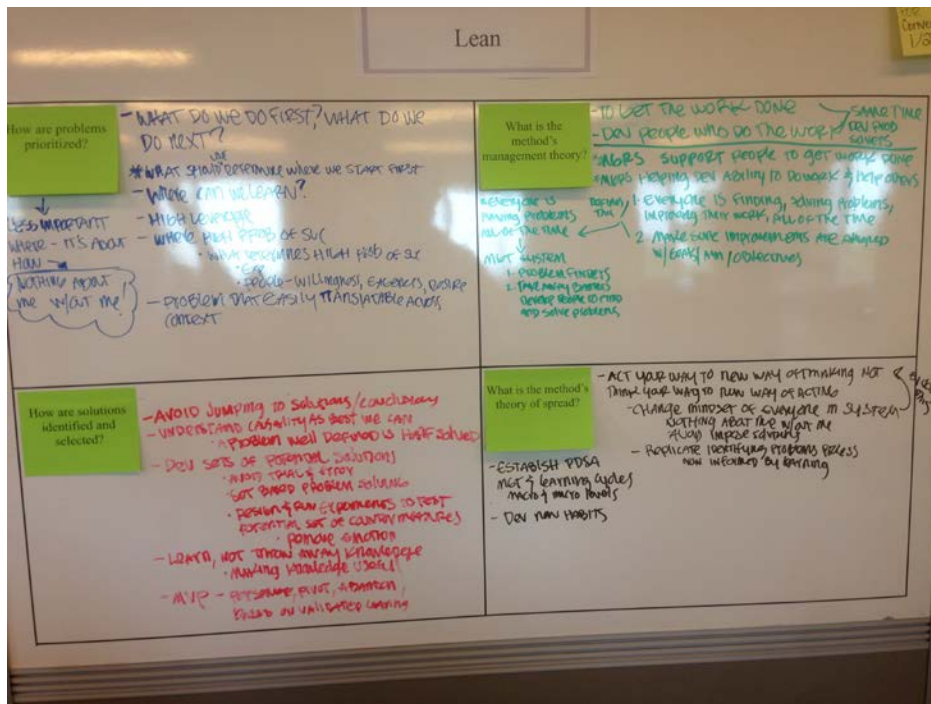 Lean
1/2
How are problems
prioritized?
- WHAT DO WE DO FIRST? WHAT DO WE
DO NEXT?
WHAT SHOULD DETERMINE WHERE WE START FIRST
- WHERE CAN WE LEARN?
- HIGH LEVERAGE
- WHERE HIGH PROB OF SUC
• WHAT DETERMINES HIGH PROB OF SC
• PEOPLE - WILLINGNESS, EAGERNESS, DESIRE
- PROBLEM THAT EASILY TRANSLATABLE ACROSS
CONTEXT
LESS IMPORTANT
WHERE - IT'S ABOUT
HOW
NOTHING ABOUT
me w/out me!
What is the
method's
management theory?
- TO GET THE WORK DONE
- DEV PEOPLE WHO DO THE WORK
SAME TIME
DEV PROB
SOLVERS
MGRS SUPPORT PEOPLE TO GET WORK DONE
MGRS HELPING DEV ABILITY TO DO WORK & HELP OTHERS
EVERYONE IS
HAVING PROBLEMS
ALL OF THE TIME
1. EVERYONE IS FINDING, SOLVING PROBLEMS,
IMPROVING THEIR WORK, ALL OF THE TIME
2 MAKE SURE IMPROVEMENTS ARE ALIGNED
W/GOALS/AIM/OBJECTIVES
MGT SYSTEM
1. PROBLEM FINDERS
2. TAKE AWAY BARRIERS
DEVELOP PEOPLE TO FIND
AND SOLVE PROBLEMS
How are solutions
identified and
selected?
- AVOID JUMPING TO SOLUTIONS/CONCLUSIONS
- UNDERSTAND CAUSALITY AS BEST WE CAN
• A PROBLEM WELL DEFINED IS HALF SOLVED
- DEV SETS OF POTENTIAL SOLUTIONS
• AVOID TRIAL & ERROR
• SET BASED PROBLEM SOLVING
• DESIGN & RUN EXPERIMENTS TO TEST
POTENTIAL SET OF COUNTERMEASURES
• REMOVE EMOTION
- LEARN, NOT THROW AWAY KNOWLEDGE
• MAKING KNOWLEDGE USEFUL
- MVP - PERSEVERE, PIVOT, ABANDON,
BASED ON VALIDATED LEARNING
What is the method's
theory of spread?
- ACT YOUR WAY TO NEW WAY OF THINKING NOT
THINK YOUR WAY TO NEW WAY OF ACTING
- CHANGE MINDSET OF EVERYONE IN SYSTEM
NOTHING ABOUT ME W/OUT ME
AVOID IMPOSE SOLUTIONS
- REPLICATE IDENTIFYING PROBLEMS PROCESS
NOW INFORMED BY LEARNING
- ESTABLISH PDSA
MGT & LEARNING CYCLES
MACRO & MICRO LEVELS
- DEV NEW HABITS